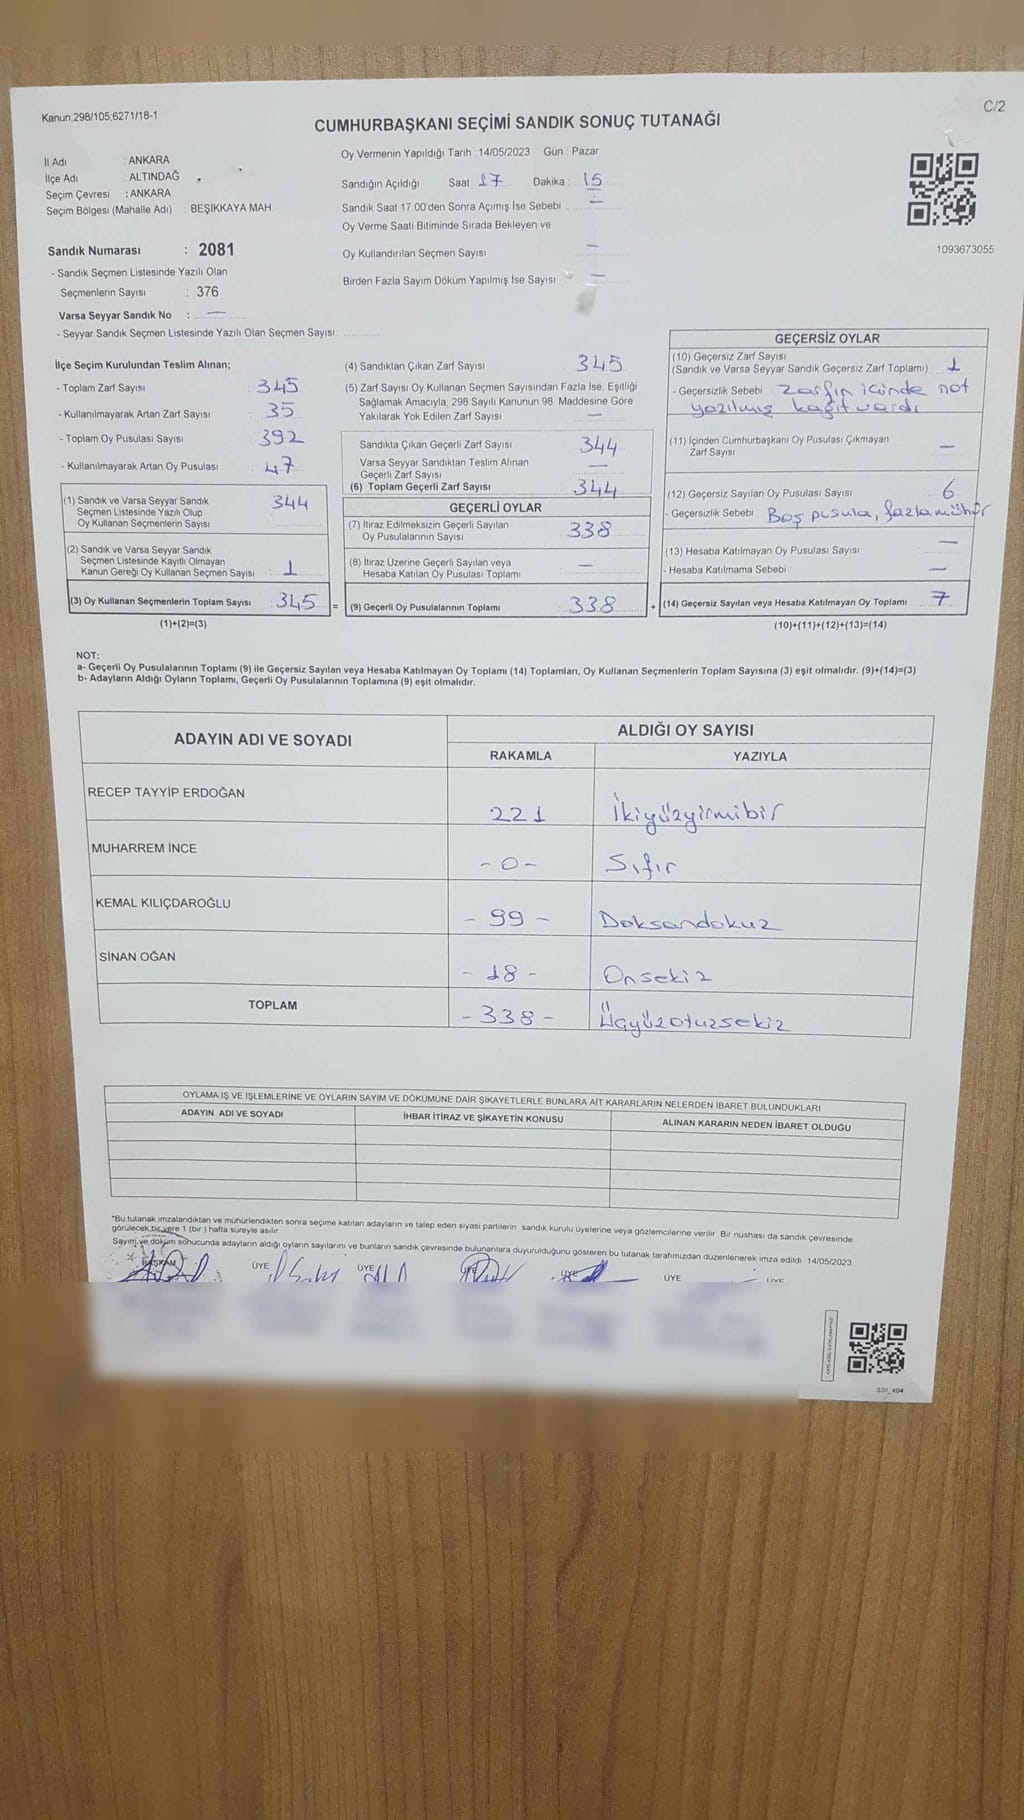 Kanun;298/105,6271/18-1
C/2
CUMHURBAŞKANI SEÇİMİ SANDIK SONUÇ TUTANAĞI
İl Adı : ANKARA
İlçe Adı : ALTINDAĞ
Seçim Çevresi : ANKARA
Seçim Bölgesi (Mahalle Adı) BEŞİKKAYA MAH.
Oy Vermenin Yapıldığı Tarih :14/05/2023 Gün : Pazar
Sandığın Açıldığı Saat 17 Dakika : 15
Sandık Saat 17:00'den Sonra Açımış İse Sebebi —
Oy Verme Saati Bitiminde Sırada Bekleyen ve
Oy Kullandırılan Seçmen Sayısı —
Birden Fazla Sayım Döküm Yapılmış İse Sayısı —
1093673055
Sandık Numarası : 2081
- Sandık Seçmen Listesinde Yazılı Olan
Seçmenlerin Sayısı : 376
Varsa Seyyar Sandık No : —
- Seyyar Sandık Seçmen Listesinde Yazılı Olan Seçmen Sayısı:
İlçe Seçim Kurulundan Teslim Alınan;
- Toplam Zarf Sayısı : 345
- Kullanılmayarak Artan Zarf Sayısı : 35
- Toplam Oy Pusulası Sayısı : 392
- Kullanılmayarak Artan Oy Pusulası : 47
(1) Sandık ve Varsa Seyyar Sandık
Seçmen Listesinde Yazılı Olup
Oy Kullanan Seçmenlerin Sayısı 344
(2) Sandık ve Varsa Seyyar Sandık
Seçmen Listesinde Kayıtlı Olmayan
Kanun Gereği Oy Kullanan Seçmen Sayısı 1
(3) Oy Kullanan Seçmenlerin Toplam Sayısı : 345 =
(1)+(2)=(3)
(4) Sandıktan Çıkan Zarf Sayısı : 345
(5) Zarf Sayısı Oy Kullanan Seçmen Sayısından Fazla İse, Eşitliği
Sağlamak Amacıyla, 298 Sayılı Kanunun 98. Maddesine Göre
Yakılarak Yok Edilen Zarf Sayısı —
Sandıkta Çıkan Geçerli Zarf Sayısı : 344
Varsa Seyyar Sandıktan Teslim Alınan
Geçerli Zarf Sayısı —
(6) Toplam Geçerli Zarf Sayısı : 344
GEÇERLİ OYLAR
(7) İtiraz Edilmeksizin Geçerli Sayılan
Oy Pusulalarının Sayısı 338
(8) İtiraz Üzerine Geçerli Sayılan veya
Hesaba Katılan Oy Pusulası Toplamı —
(9) Geçerli Oy Pusulalarının Toplamı : 338 +
GEÇERSİZ OYLAR
(10) Geçersiz Zarf Sayısı
(Sandık ve Varsa Seyyar Sandık Geçersiz Zarf Toplamı) 1
- Geçersizlik Sebebi Zarfın içinde not
yazılmış kağıt vardı
(11) İçinden Cumhurbaşkanı Oy Pusulası Çıkmayan
Zarf Sayısı —
(12) Geçersiz Sayılan Oy Pusulası Sayısı 6
- Geçersizlik Sebebi Boş pusula, fazla mühür
(13) Hesaba Katılmayan Oy Pusulası Sayısı —
- Hesaba Katılmama Sebebi : —
(14) Geçersiz Sayılan veya Hesaba Katılmayan Oy Toplamı 7
(10)+(11)+(12)+(13)=(14)
NOT:
a- Geçerli Oy Pusulalarının Toplamı (9) ile Geçersiz Sayılan veya Hesaba Katılmayan Oy Toplamı (14) Toplamları, Oy Kullanan Seçmenlerin Toplam Sayısına (3) eşit olmalıdır. (9)+(14)=(3)
b- Adayların Aldığı Oyların Toplamı, Geçerli Oy Pusulalarının Toplamına (9) eşit olmalıdır.
ADAYIN ADI VE SOYADI ALDIĞI OY SAYISI
RAKAMLA YAZIYLA
RECEP TAYYİP ERDOĞAN 221 İkiyüzyirmibir
MUHARREM İNCE -0- Sıfır
KEMAL KILIÇDAROĞLU -99- Doksandokuz
SİNAN OĞAN -18- Onsekiz
TOPLAM -338- Üçyüzotuzsekiz
OYLAMA İŞ VE İŞLEMLERİNE VE OYLARIN SAYIM VE DÖKÜMÜNE DAİR ŞİKAYETLERLE BUNLARA AİT KARARLARIN NELERDEN İBARET BULUNDUKLARI
ADAYIN ADI VE SOYADI İHBAR İTİRAZ VE ŞİKAYETİN KONUSU ALINAN KARARIN NEDEN İBARET OLDUĞU
"Bu tutanak imzalandıktan ve mühürlendikten sonra seçime katılan adayların ve talep eden siyasi partilerin sandık kurulu üyelerine veya gözlemcilerine verilir. Bir nüshası da sandık çevresinde
görülecek bir yere 1 (bir ) hafta süreyle asılır.
Sayım ve döküm sonucunda adayların aldığı oyların sayılarını ve bunların sandık çevresinde bulunanlara duyurulduğunu gösteren bu tutanak tarafımızdan düzenlenerek imza edildi. 14/05/2023
BAŞKAN ÜYE ÜYE ÜYE ÜYE ÜYE ÜYE
SSI_404